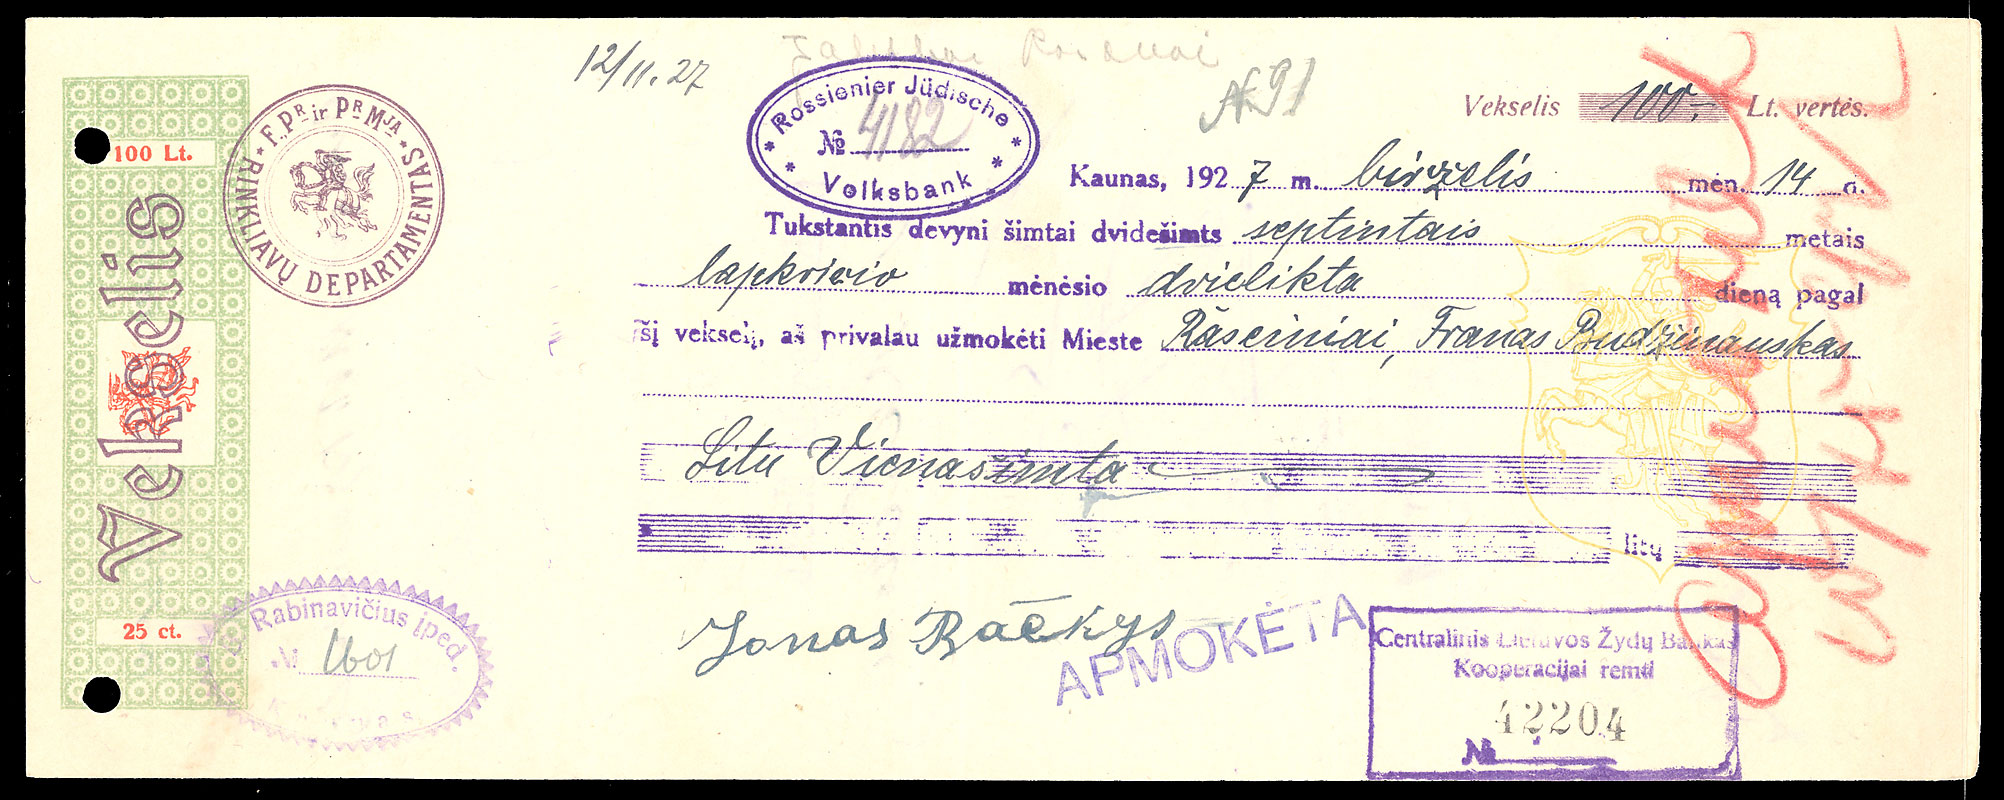 12/11.27
№91
Vekselis 100.- Lt. vertės.
100 Lt.
Vekselis
25 ct.
F. PR ir PR MJA * RINKLIAVŲ DEPARTAMENTAS *
Rossienier Jüdische
№ 4182
Volksbank
Kaunas, 1927 m. birželis mėn. 14 d.
Tukstantis devyni šimtai dvidešimts septintais metais
lapkričio mėnėsio dvielikta dieną pagal
šį vekselį, aš privalau užmokėti Mieste Raseiniai, Franas Budžinauskas
Litu Vienašimta
litų
Jonas Račkys
APMOKĖTA
Rabinavičius įped.
№ 1601
Centralinis Lietuvos Žydų Bankas
Kooperacijai remti
42204
№